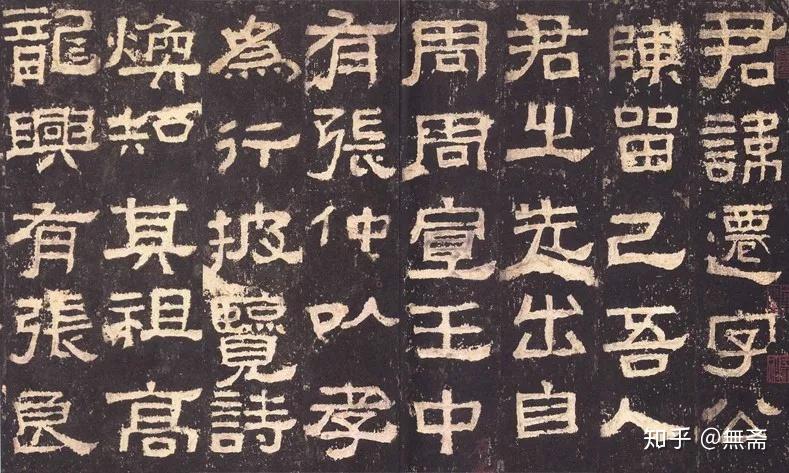 君諱遷字公
陳留己吾人
君之先出自
周周宣王中
有張仲以孝
為行披覽詩
煥知其祖高
龍興有張良
知乎 @無斋